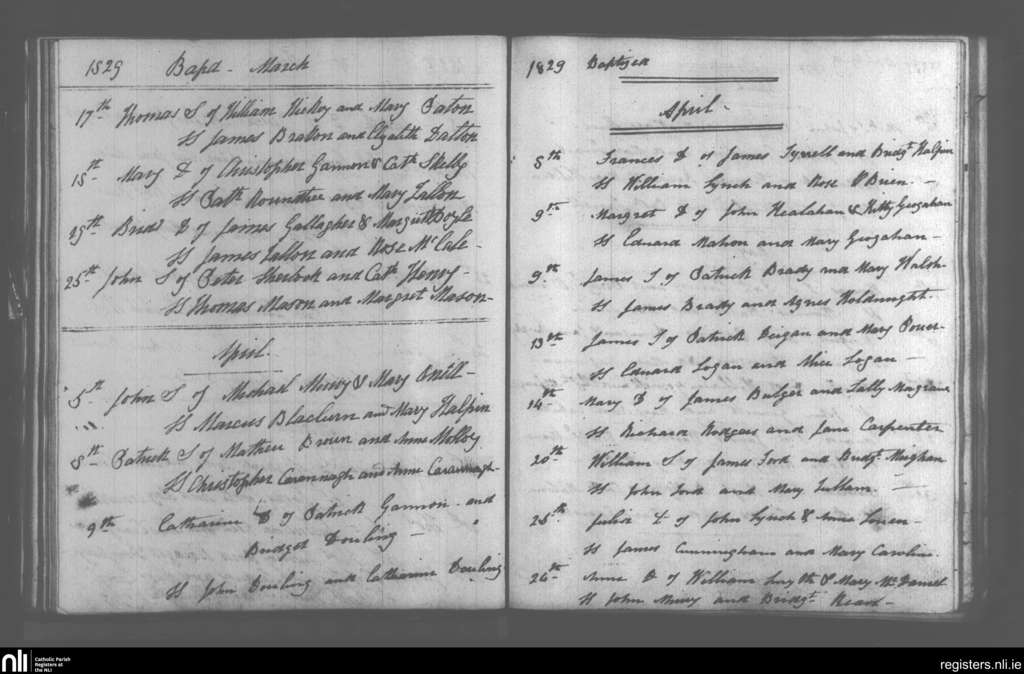 1829 Bapd - March
17th Thomas S of William Hickey and Mary Eaton
Ss James Bratton and Elizabeth Dalton
18th Mary D of Christopher Gannon & Cath Skelly
Ss Patk Rourke and Mary Fallon
19th Bridt D of James Gallagher & Margrett Boyle
Ss James Fallon and Rose McCale -
25th John S of Peter Sherlock and Cath Henry -
Ss Thomas Mason and Margret Mason -
April.
5th John S of Michael Murry & Mary
Ss Marcus Blackurn and Mary Halpin
8th Patrick S of Mathew Brown and Anne Molloy
Ss Christopher Cavannagh and Anne Cavannagh -
9th Catharine D of Patrick Gannon and
Bridget Dowling -
Ss John Dowling and Catharine Dowling
1829 Baptized
April -
8th Frances D of James Tyrrell and Bridgt Halpin
Ss William Lynch and Rose O'Brien. -
9th Margret D of John Healahan & Kitty Geogahan
Ss Edward Mahon and Mary Geogahan -
9th James S of Patrick Brady and Mary Walsh -
Ss James Brady and Agnes
13th James S of Patrick Deigan and Mary Power -
Ss Edward Logan and Alice Logan -
14th Mary D of James Bulger and Sally Margrave
Ss Richard Rodgers and Jane Carpenter
20th William S of James Ford and Bridgt Meighan
Ss John Ford and Mary -
25th Julia D of John Lynch & Anne
Ss James Cunningham and Mary Caroline.
26th Anne D of William Smyth & Mary McDaniel
Ss John Murry and Bridgt -
nli
Catholic Parish
Registers at
the NLI
registers.nli.ie